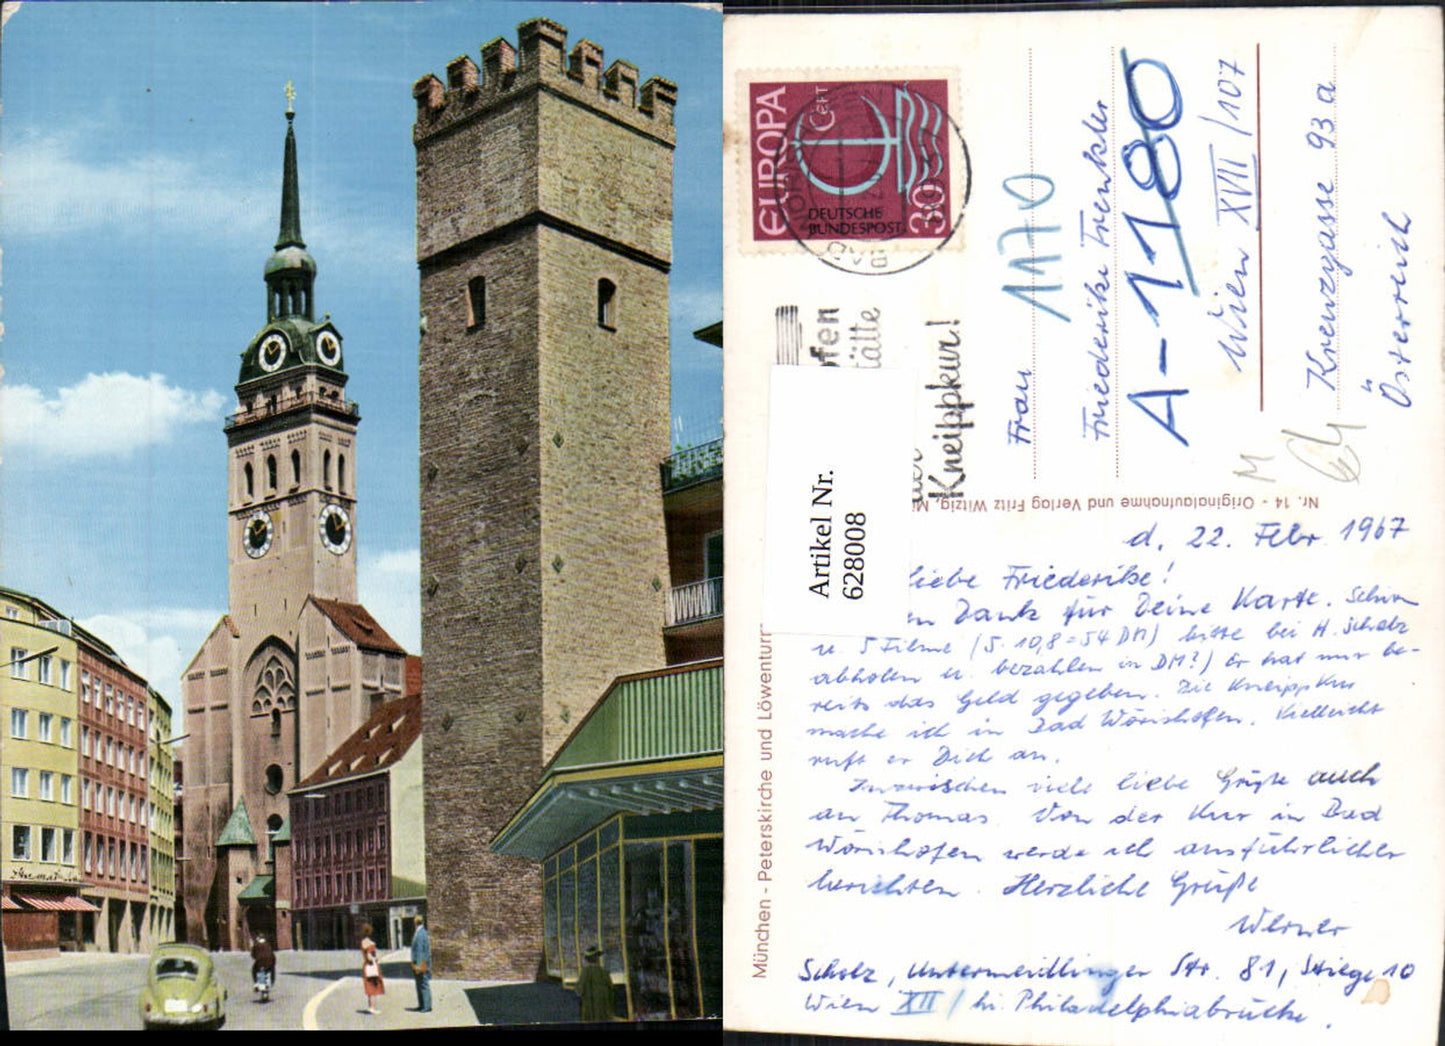 EUROPA
CEPT
DEUTSCHE
BUNDESPOST
30
BAD
Kneippkur!
Artikel Nr.
628008
Frau
1170
Friederike Trenkler
A-1180
Wien XVII/107
Krenzgasse 93 a
Österreich
Nr. 14 - Originalaufnahme und Verlag Fritz Witzig, M
München - Peterskirche und Löwenturm
d. 22. Febr. 1967
liebe Friederike!
Dank für Deine Karte. Schon
u. 5 Filme (5. 10,8 = 54 DM) bitte bei H. Scholz
abholen u. bezahlen in DM?) Er hat mir be-
reits das Geld gegeben. Die Kneippkur
mache ich in Bad Wörishofen. Vielleicht
ruft er Dich an.
Inzwischen viele liebe Grüße auch
an Thomas. Von der Kur in Bad
Wörishofen werde ich ausführlicher
berichten. Herzliche Grüße
Werner
Scholz, Untermeidlinger Str. 81, Stiege 10
Wien XII / bei Philadelphiabrücke.